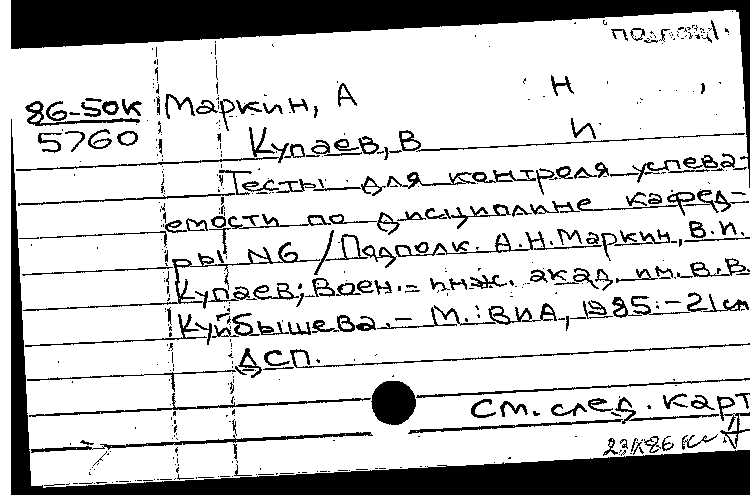 подполк.
86-50к Маркин, А Н ,
5760 Купаев, В И
Тесты для контроля успева-
емости по дисциплине кафед-
ры N6 / Подполк. А.Н.Маркин, В.И.
Купаев; Воен.-инж. акад. им. В.В.
Куйбышева. - М.: ВИА, 1985. - 21 см
ДСП.
См. след. карт